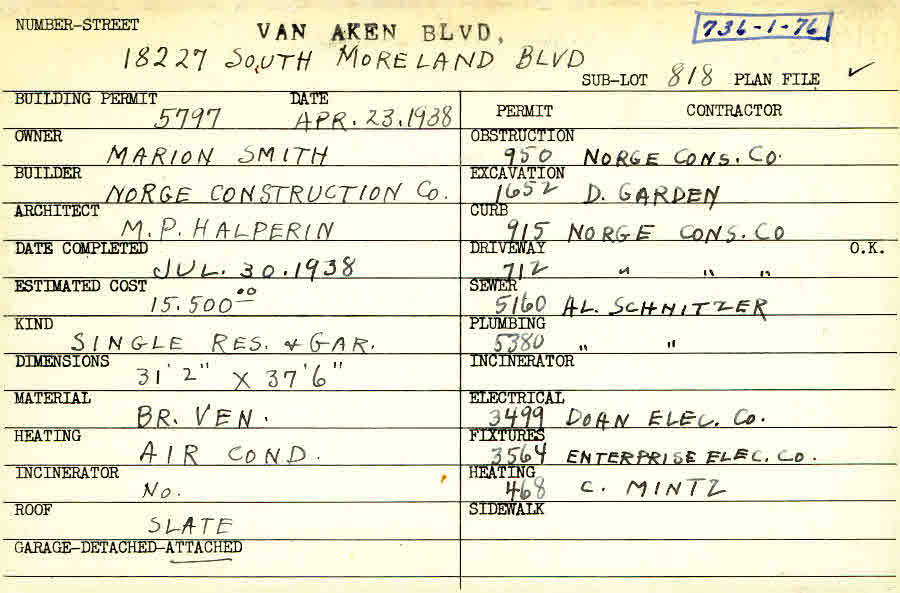 NUMBER-STREET VAN AKEN BLVD. 736-1-76
18227 SOUTH MORELAND BLVD
SUB-LOT 818 PLAN FILE ✓
BUILDING PERMIT DATE
5797 APR. 23. 1938
OWNER
MARION SMITH
BUILDER
NORGE CONSTRUCTION Co.
ARCHITECT
M. P. HALPERIN
DATE COMPLETED
JUL. 30. 1938
ESTIMATED COST
15.500.00
KIND
SINGLE RES. & GAR.
DIMENSIONS
31' 2" X 37' 6"
MATERIAL
BR. VEN.
HEATING
AIR COND.
INCINERATOR
No.
ROOF
SLATE
GARAGE-DETACHED-ATTACHED
PERMIT CONTRACTOR
OBSTRUCTION
950 NORGE CONS. Co.
EXCAVATION
1652 D. GARDEN
CURB
915 NORGE CONS. CO
DRIVEWAY O.K.
712 " " "
SEWER
5160 AL. SCHNITZER
PLUMBING
5380 " "
INCINERATOR
ELECTRICAL
3499 DOAN ELEC. Co.
FIXTURES
3564 ENTERPRISE ELEC. Co.
HEATING
468 C. MINTZ
SIDEWALK